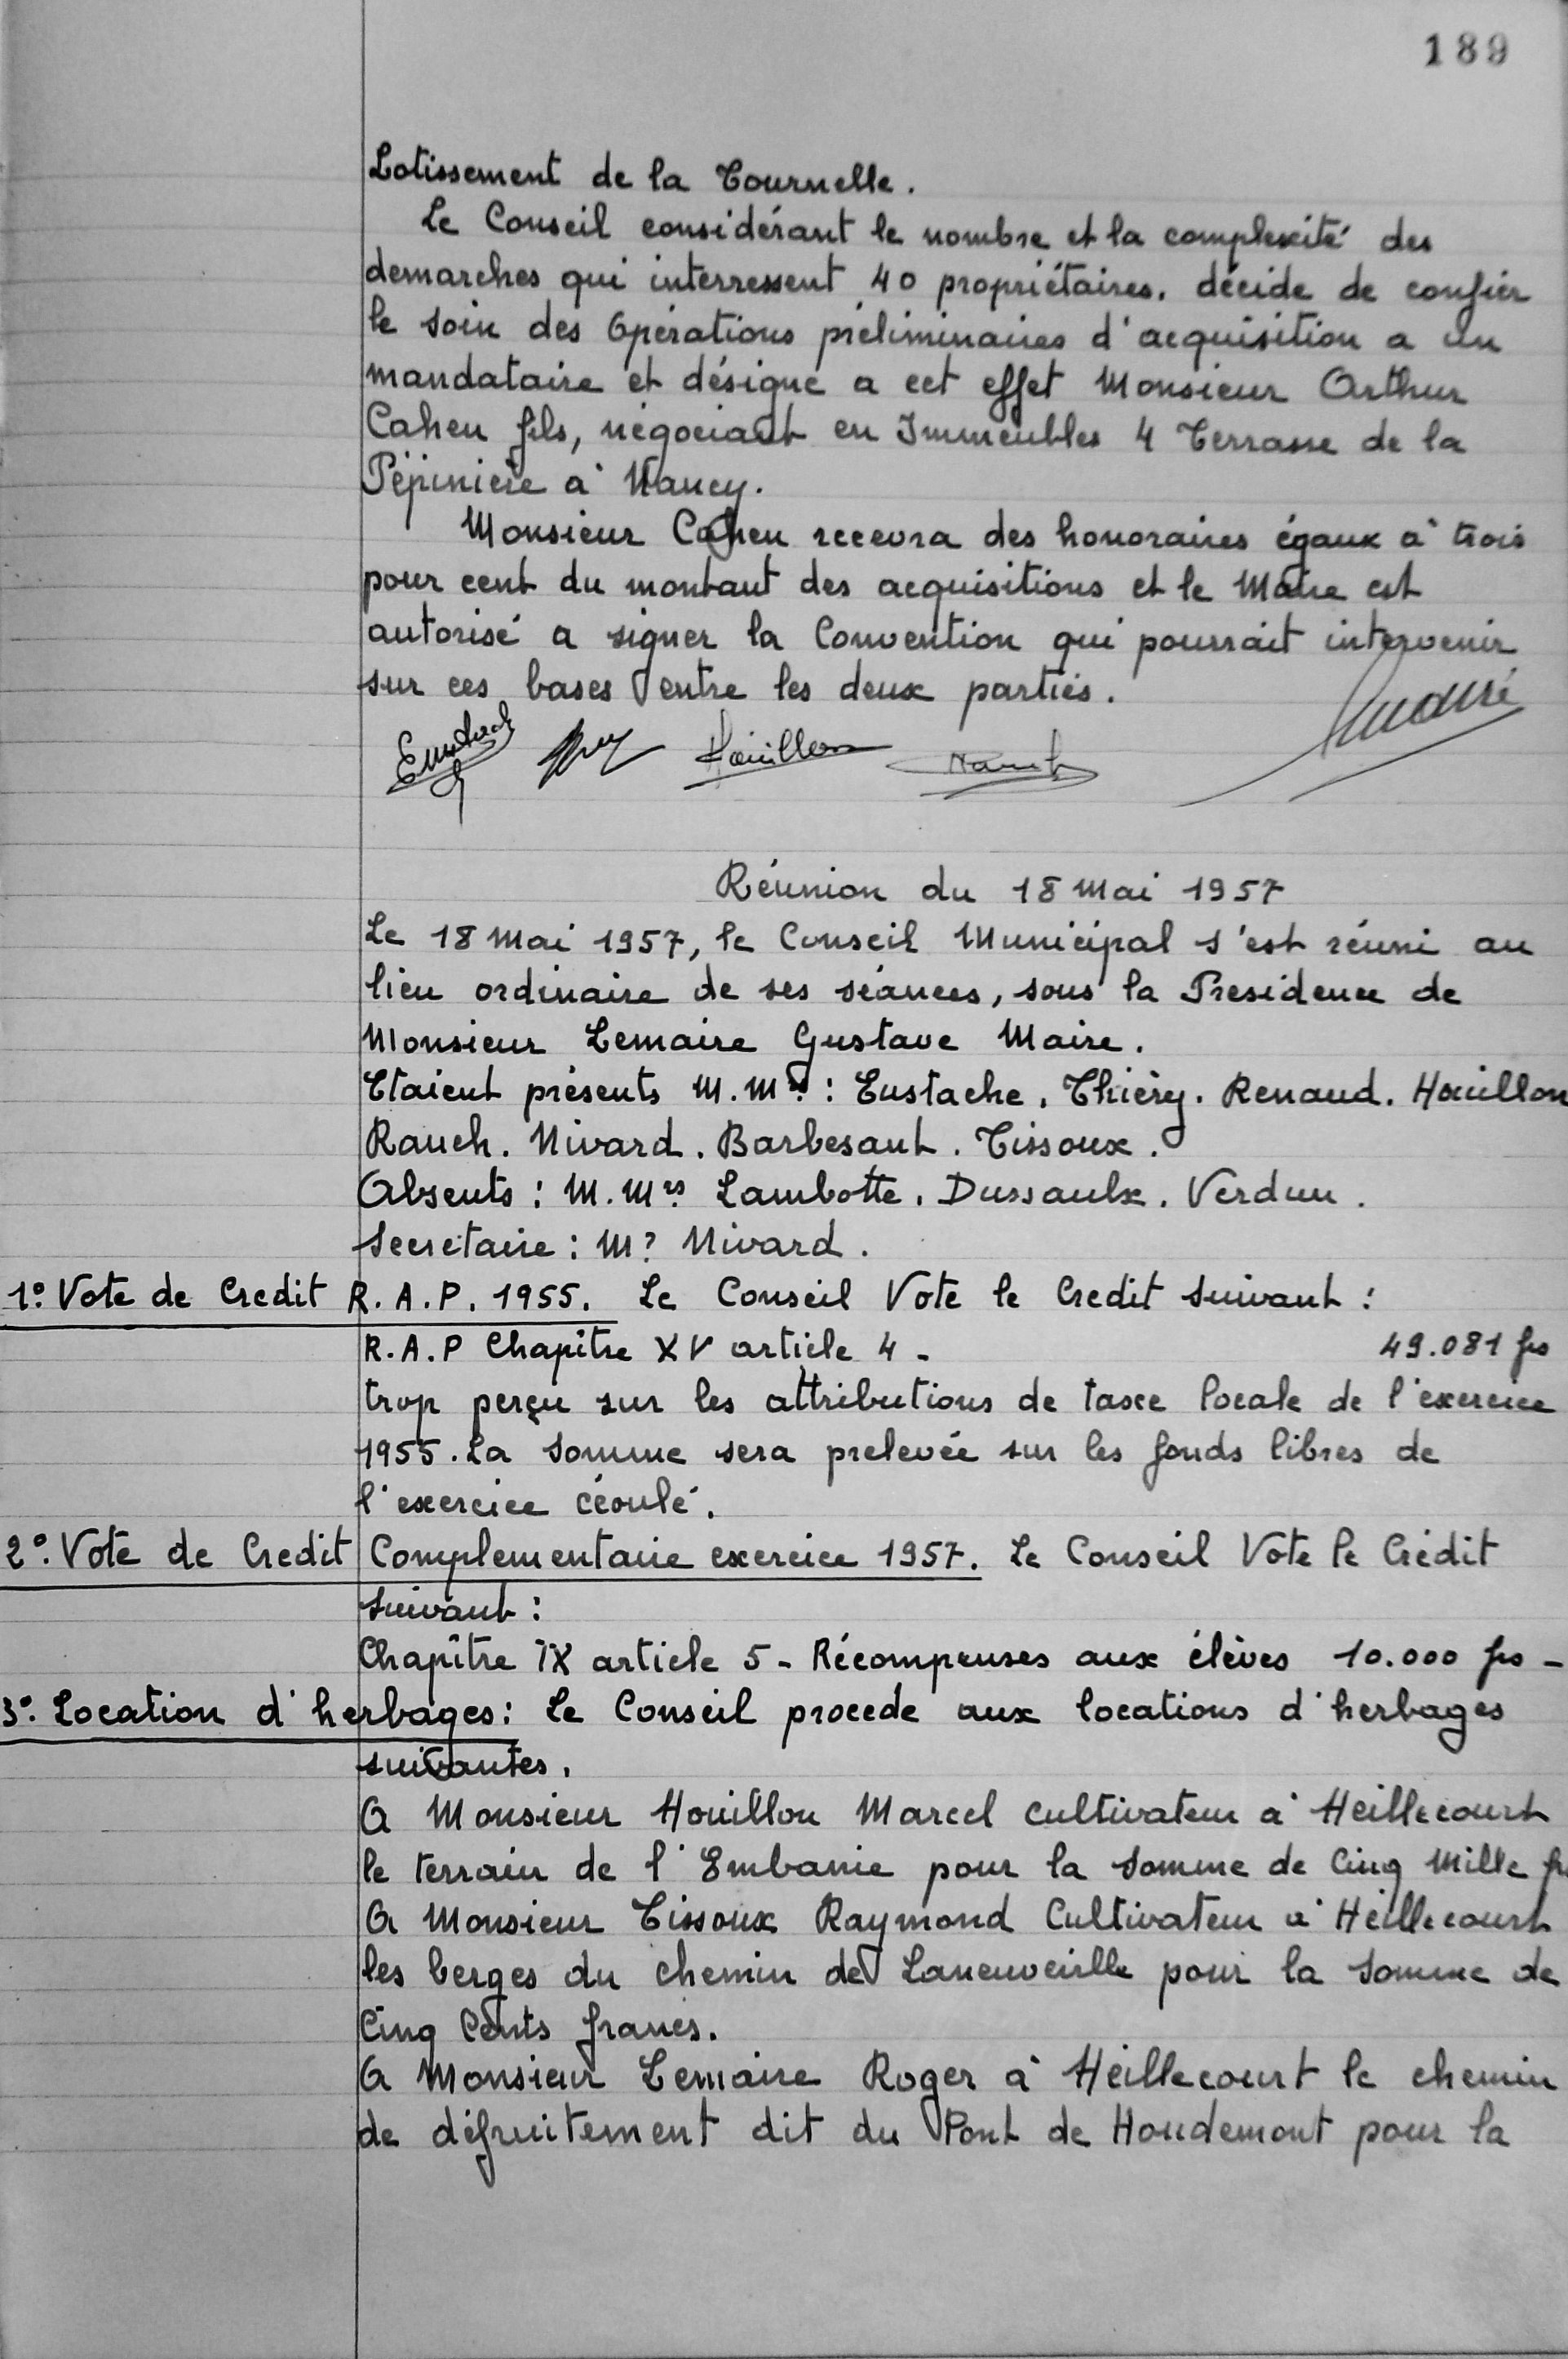 189
Lotissement de la Tournelle.
Le Conseil considérant le nombre et la complexité des
demarches qui interressent 40 propriétaires. décide de confier
le soin des Opérations préliminaires d'acquisition a un
mandataire et désigne a cet effet Monsieur Arthur
Cahen fils, négociant en Immeubles 4 Terrasse de la
Pépinière à Nancy.
Monsieur Cahen recevra des honoraires égaux à trois
pour cent du montant des acquisitions et le Maire est
autorisé a signer la Convention qui pourrait intervenir
sur ces bases entre les deux parties.
Houillon
Réunion du 18 Mai 1957
Le 18 Mai 1957, le Conseil Municipal s'est réuni au
lieu ordinaire de ses séances, sous la Presidence de
Monsieur Lemaire Gustave Maire.
Etaient présents M.Mrs : Eustache. Thiéry. Renaud. Houillon
Rauch. Nivard. Barbesant. Tissoux.
Absents : M.Mrs Lambotte. Dussaulx. Verdun.
Secretaire : Mr Nivard.
1º. Vote de Credit R.A.P. 1955. Le Conseil Vote le Credit suivant :
R.A.P Chapître XV article 4 - 49.081 frs
trop perçu sur les attributions de taxe locale de l'exercice
1955. La somme sera prelevée sur les fonds libres de
l'exercice écoulé.
2º. Vote de Credit Complementaire exercice 1957. Le Conseil Vote le Crédit
suivant :
Chapître IX article 5 - Récompenses aux élèves 10.000 frs -
3º. Location d'herbages : le Conseil procede aux locations d'herbages
suivantes.
A Monsieur Houillon Marcel cultivateur à Heillecourt
le terrain de l'Embanie pour la somme de Cinq Mille fr
A Monsieur Tissoux Raymond Cultivateur à Heillecourt
les berges du chemin de Laneuveville pour la somme de
Cinq Cents francs.
A Monsieur Lemaire Roger à Heillecourt le chemin
de défruitement dit du Pont de Houdemont pour la